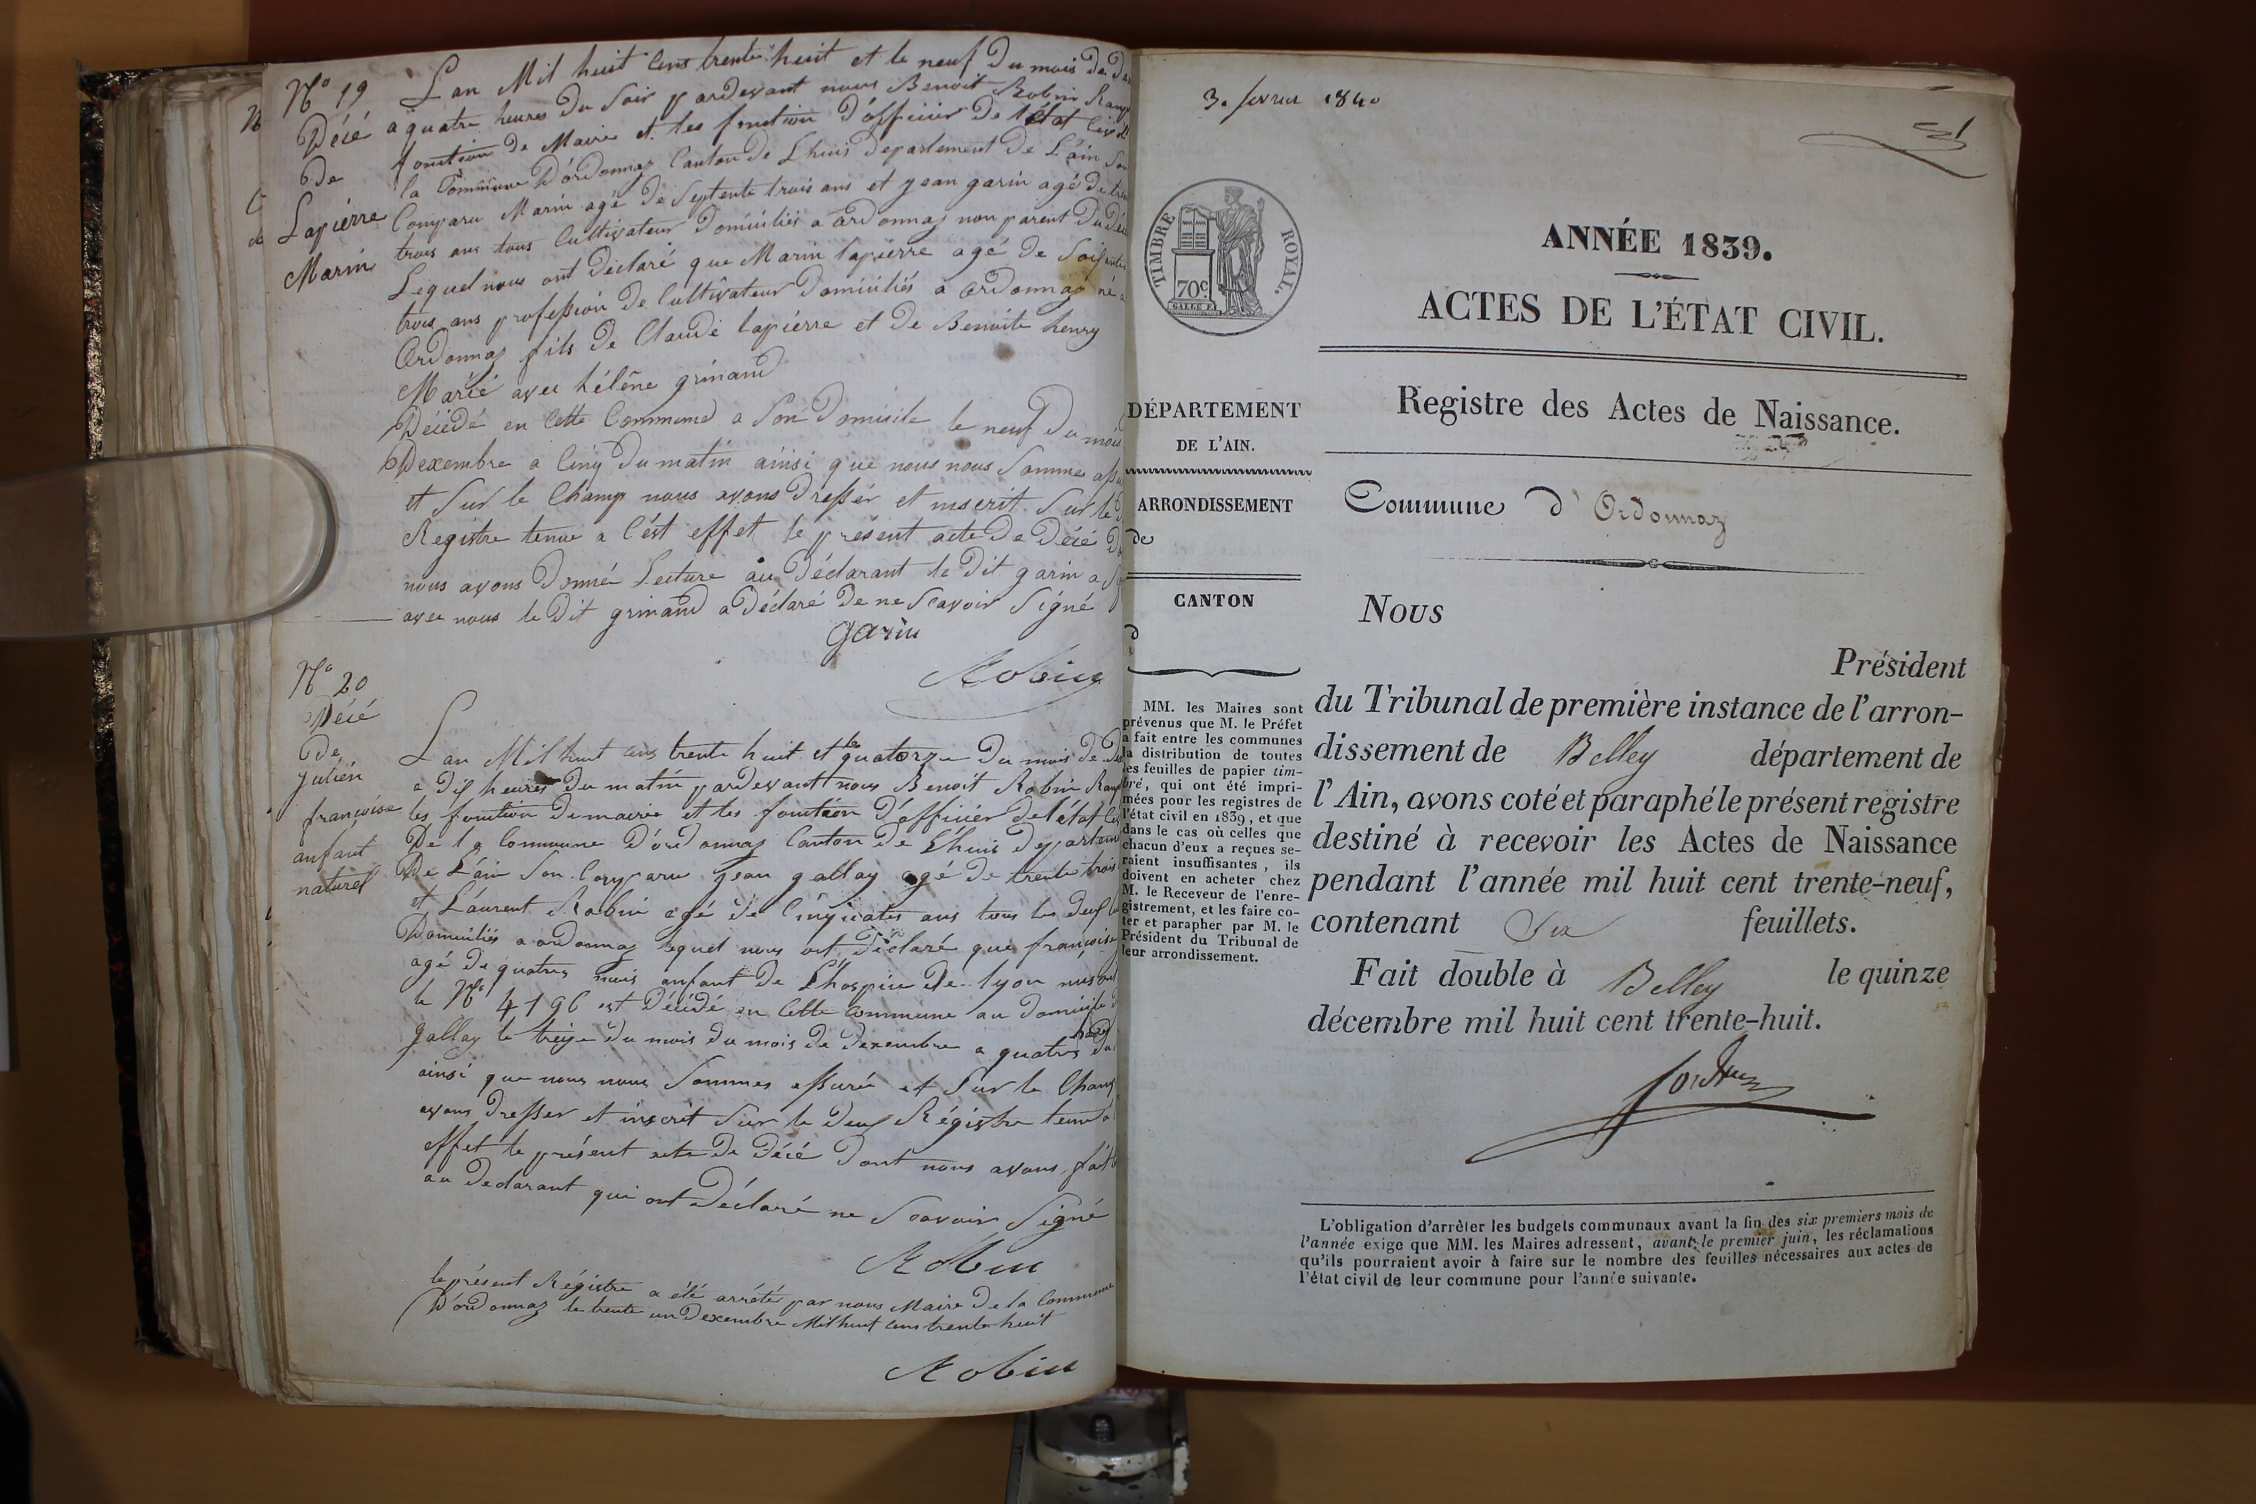 N° 19
Décé
de
Lapiérre
Marin
L'an Mil huit cens trente huit et le neuf du mois de
a quatre heures du soir pardevant nous Benoit Robin
fonction de Maire et les fonction d'officier de l'état Civil
la Commune d'ordonnaz Canton de Lhuis departement de L'ain
Comparu Marin agé de Septente trois ans et jean garin agé de
trois ans tous Cultivateur Domiciliés a ordonnaz non parent du
Lequel nous ont déclaré que Marin lapierre agé de Soixante
trois ans profession de Cultivateur domiciliés a ordonnaz né a
Ordonnaz fils de Claude lapiérre et de Benoite henry
Marié avec hélêne grinand
Décédé en Cette Commune a Son domicile le neuf du mois
Dexembre a Cinq du matin ainsi que nous nous Somme
et Sur le Champ nous avons dresser et inscrit Sur le
Registre tenue a C'ést effet le présent acte de Décé
nous avons donné Lecture au Déclarant le dit garin a
avec nous le dit grinand a déclaré de ne Scavoir Signé
garin
Robin
N° 20
Décé
de
julién
françoise
anfant
naturel
L'an Mil huit cens trente huit et le quatorze du mois de
a dix heures du matin pardevant nous Benoit Robin
les fonction de mairie et les fonction d'officiér de l'état
De la Commune d'ordonnaz Canton de Lhuis
De L'ain Son Comparu jean gallay agé de trente trois
et Laurent Robin agé de Cinquante ans tous les deux
Domiciliés a ordonnaz lequel nous ont déclaré que françoise
agé de quatres mois anfant de L'hospice de lyon
le N° 4196 est Décédé en Cette Commune au domicile
gallay le treize du mois du mois de dexembre a quatres du
ainsi que nous nous Sommes assuré et Sur le Champ
avons dresser et inscrit Sur le deux Régistre tenue
effet le présent acte de Décé dont nous avons fait
au declarant qui ont déclaré ne Scavoir Signé
Robin
le présent Régistre a été arrété par nous Maire de la Commune
D'ordonnaz le trente un Dexembre Mil huit cens trente huit
Robin
3. fevrier 1840
TIMBRE ROYAL.
70c
ANNÉE 1839.
ACTES DE L'ÉTAT CIVIL.
Registre des Actes de Naissance.
Commune d'Ordonnaz
DÉPARTEMENT
DE L'AIN.
ARRONDISSEMENT
de
CANTON
d
MM. les Maires sont
prévenus que M. le Préfet
a fait entre les communes
la distribution de toutes
les feuilles de papier tim-
bré, qui ont été impri-
mées pour les registres de
l'état civil en 1839, et que
dans le cas où celles que
chacun d'eux a reçues se-
raient insuffisantes, ils
doivent en acheter chez
M. le Receveur de l'enre-
gistrement, et les faire co-
ter et parapher par M. le
Président du Tribunal de
leur arrondissement.
Nous
Président
du Tribunal de première instance de l'arron-
dissement de Belley département de
l'Ain, avons coté et paraphé le présent registre
destiné à recevoir les Actes de Naissance
pendant l'année mil huit cent trente-neuf,
contenant Six feuillets.
Fait double à Belley le quinze
décembre mil huit cent trente-huit.
L'obligation d'arrêter les budgets communaux avant la fin des six premiers mois de
l'année exige que MM. les Maires adressent, avant le premier juin, les réclamations
qu'ils pourraient avoir à faire sur le nombre des feuilles nécessaires aux actes de
l'état civil de leur commune pour l'année suivante.